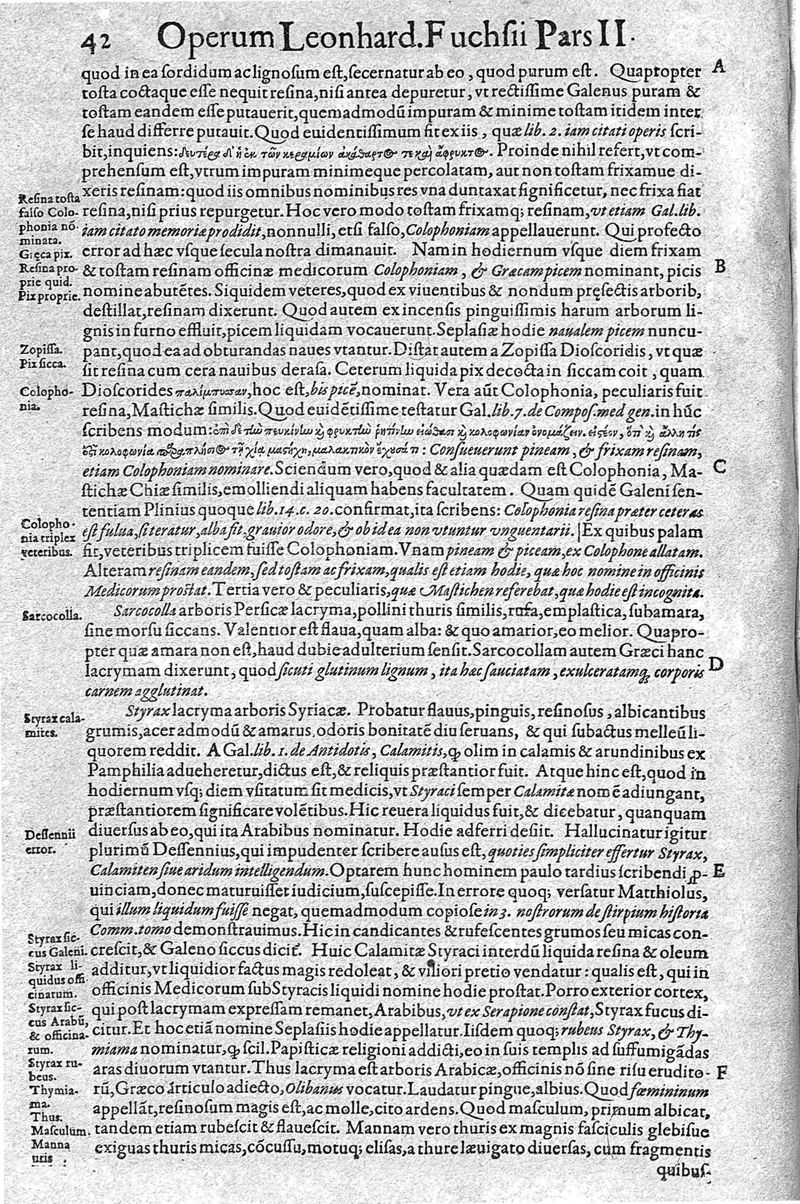 42 Operum Leonhard. Fuchsii Pars II.
quod in ea sordidum ac lignosum est, secernatur ab eo, quod purum est. Quapropter
A
tosta coctaque esse nequit resina, nisi antea depuretur, vt rectissime Galenus puram &
tostam eandem esse putauerit, quemadmodũ impuram & minime tostam itidem inter
se haud differre putauit. Quod euidentissimum fit ex iis, quæ lib. 2. iam citati operis scri-
bit, inquiens: δευτέρα δ' ἡ ἐκ τῶν κεραμίων Proinde nihil refert, vt com-
prehensum est, vtrum impuram minimeque percolatam, aut non tostam frixamue di-
xeris resinam: quod iis omnibus nominibus res vna duntaxat significetur, nec frixa fiat
Resina tosta
falso Colo-
phonia nõ-
minata.
Gręca pix.
Resina pro-
prie quid.
Pix proprie.
resina, nisi prius repurgetur. Hoc vero modo tostam frixamq; resinam, vt etiam Gal. lib.
iam citato memoriæ prodidit, nonnulli, etsi falso, Colophoniam appellauerunt. Qui profecto
error ad hæc vsque secula nostra dimanauit. Nam in hodiernum vsque diem frixam
& tostam resinam officinæ medicorum Colophoniam, & Græcam picem nominant, picis
B
nomine abutẽtes. Siquidem veteres, quod ex viuentibus & nondum pręsectis arborib,
destillat, resinam dixerunt. Quod autem ex incensis pinguissimis harum arborum li-
gnis in furno effluit, picem liquidam vocauerunt. Seplasiæ hodie naualem picem nuncu-
Zopissa.
Pix sicca.
pant, quod ea ad obturandas naues vtantur. Distat autem a Zopissa Dioscoridis, vt quæ
sit resina cum cera nauibus derasa. Ceterum liquida pix decocta in siccam coit, quam
Colopho-
nia.
Dioscorides παλίμπισσαν, hoc est, bis picẽ, nominat. Vera aũt Colophonia, peculiaris fuit
resina, Mastichæ similis. Quod euidẽtissime testatur Gal. lib. 7. de Compos. med gen. in hũc
scribens modum: Consueuerunt pineam, & frixam resinam,
etiam Colophoniam nominare. Sciendum vero, quod & alia quædam est Colophonia, Ma-
C
stichæ Chiæ similis, emolliendi aliquam habens facultatem. Quam quidẽ Galeni sen-
tentiam Plinius quoque lib. 14. c. 20. confirmat, ita scribens: Colophonia resina præter ceteras
Colopho-
nia triplex
veteribus.
est fulua, si teratur, alba fit, grauior odore, & ob id ea non vtuntur vnguentarii. | Ex quibus palam
fit, veteribus triplicem fuisse Colophoniam. Vnam pineam & piceam, ex Colophone allatam.
Alteram resinam eandem, sed tostam ac frixam, qualis est etiam hodie, quæ hoc nomine in officinis
Medicorum prostat. Tertia vero & peculiaris, quæ Mastichen referebat, quæ hodie est incognita.
Sarcocolla.
Sarcocolla arboris Persicæ lacryma, pollini thuris similis, rufa, emplastica, subamara,
sine morsu siccans. Valentior est flaua, quam alba: & quo amarior, eo melior. Quapro-
pter quæ amara non est, haud dubie adulterium sensit. Sarcocollam autem Græci hanc
lacrymam dixerunt, quod sicuti glutinum lignum, ita hæc sauciatam, exulceratamq; corporis
D
carnem agglutinat.
Styrax cala-
mites.
Styrax lacryma arboris Syriacæ. Probatur flauus, pinguis, resinosus, albicantibus
grumis, acer admodũ & amarus, odoris bonitatẽ diu seruans, & qui subactus melleũ li-
quorem reddit. A Gal. lib. 1. de Antidotis, Calamitis, ꝙ olim in calamis & arundinibus ex
Pamphilia adueheretur, dictus est, & reliquis præstantior fuit. Atque hinc est, quod in
hodiernum vsq; diem vsitatum sit medicis, vt Styraci semper Calamitæ nomẽ adiungant,
præstantiorem significare volẽtibus. Hic reuera liquidus fuit, & dicebatur, quanquam
Dessennii
error.
diuersus ab eo, qui ita Arabibus nominatur. Hodie adferri desiit. Hallucinatur igitur
plurimũ Dessennius, qui impudenter scribere ausus est, quoties simpliciter effertur Styrax,
Calamiten siue aridum intelligendum. Optarem hunc hominem paulo tardius scribendi ꝓ-
E
uinciam, donec maturuisset iudicium, suscepisse. In errore quoq; versatur Matthiolus,
qui illum liquidum fuisse negat, quemadmodum copiose in 3. nostrorum de stirpium historia
Comm. tomo demonstrauimus. Hic in candicantes & rufescentes grumos seu micas con-
Styrax sic-
cus Galeni.
crescit, & Galeno siccus dicit̃. Huic Calamitæ Styraci interdũ liquida resina & oleum
Styrax li-
quidus offi
cinarum.
additur, vt liquidior factus magis redoleat, & viliori pretio vendatur: qualis est, qui in
officinis Medicorum sub Styracis liquidi nomine hodie prostat. Porro exterior cortex,
Styrax sic-
cus Arabũ,
& officina-
rum.
qui post lacrymam expressam remanet, Arabibus, vt ex Serapione constat, Styrax fucus di-
citur. Et hoc etiã nomine Seplasiis hodie appellatur. Iisdem quoq; rubeus Styrax, & Thy-
miama nominatur, ꝙ scil. Papisticæ religioni addicti, eo in suis templis ad suffumigãdas
Styrax ru-
beus.
Thymia-
ma.
Thus.
Masculum.
Manna
uris
aras diuorum vtantur. Thus lacryma est arboris Arabicæ, officinis nõ sine risu erudito-
F
rũ, Græco articulo adiecto, Olibanus vocatur. Laudatur pingue, albius. Quod fœmininum
appellãt, resinosum magis est, ac molle, cito ardens. Quod masculum, primum albicat,
tandem etiam rubescit & flauescit. Mannam vero thuris ex magnis fasciculis glebisue
exiguas thuris micas, cõcussu, motuq; elisas, a thure læuigato diuersas, cum fragmentis
quibus-